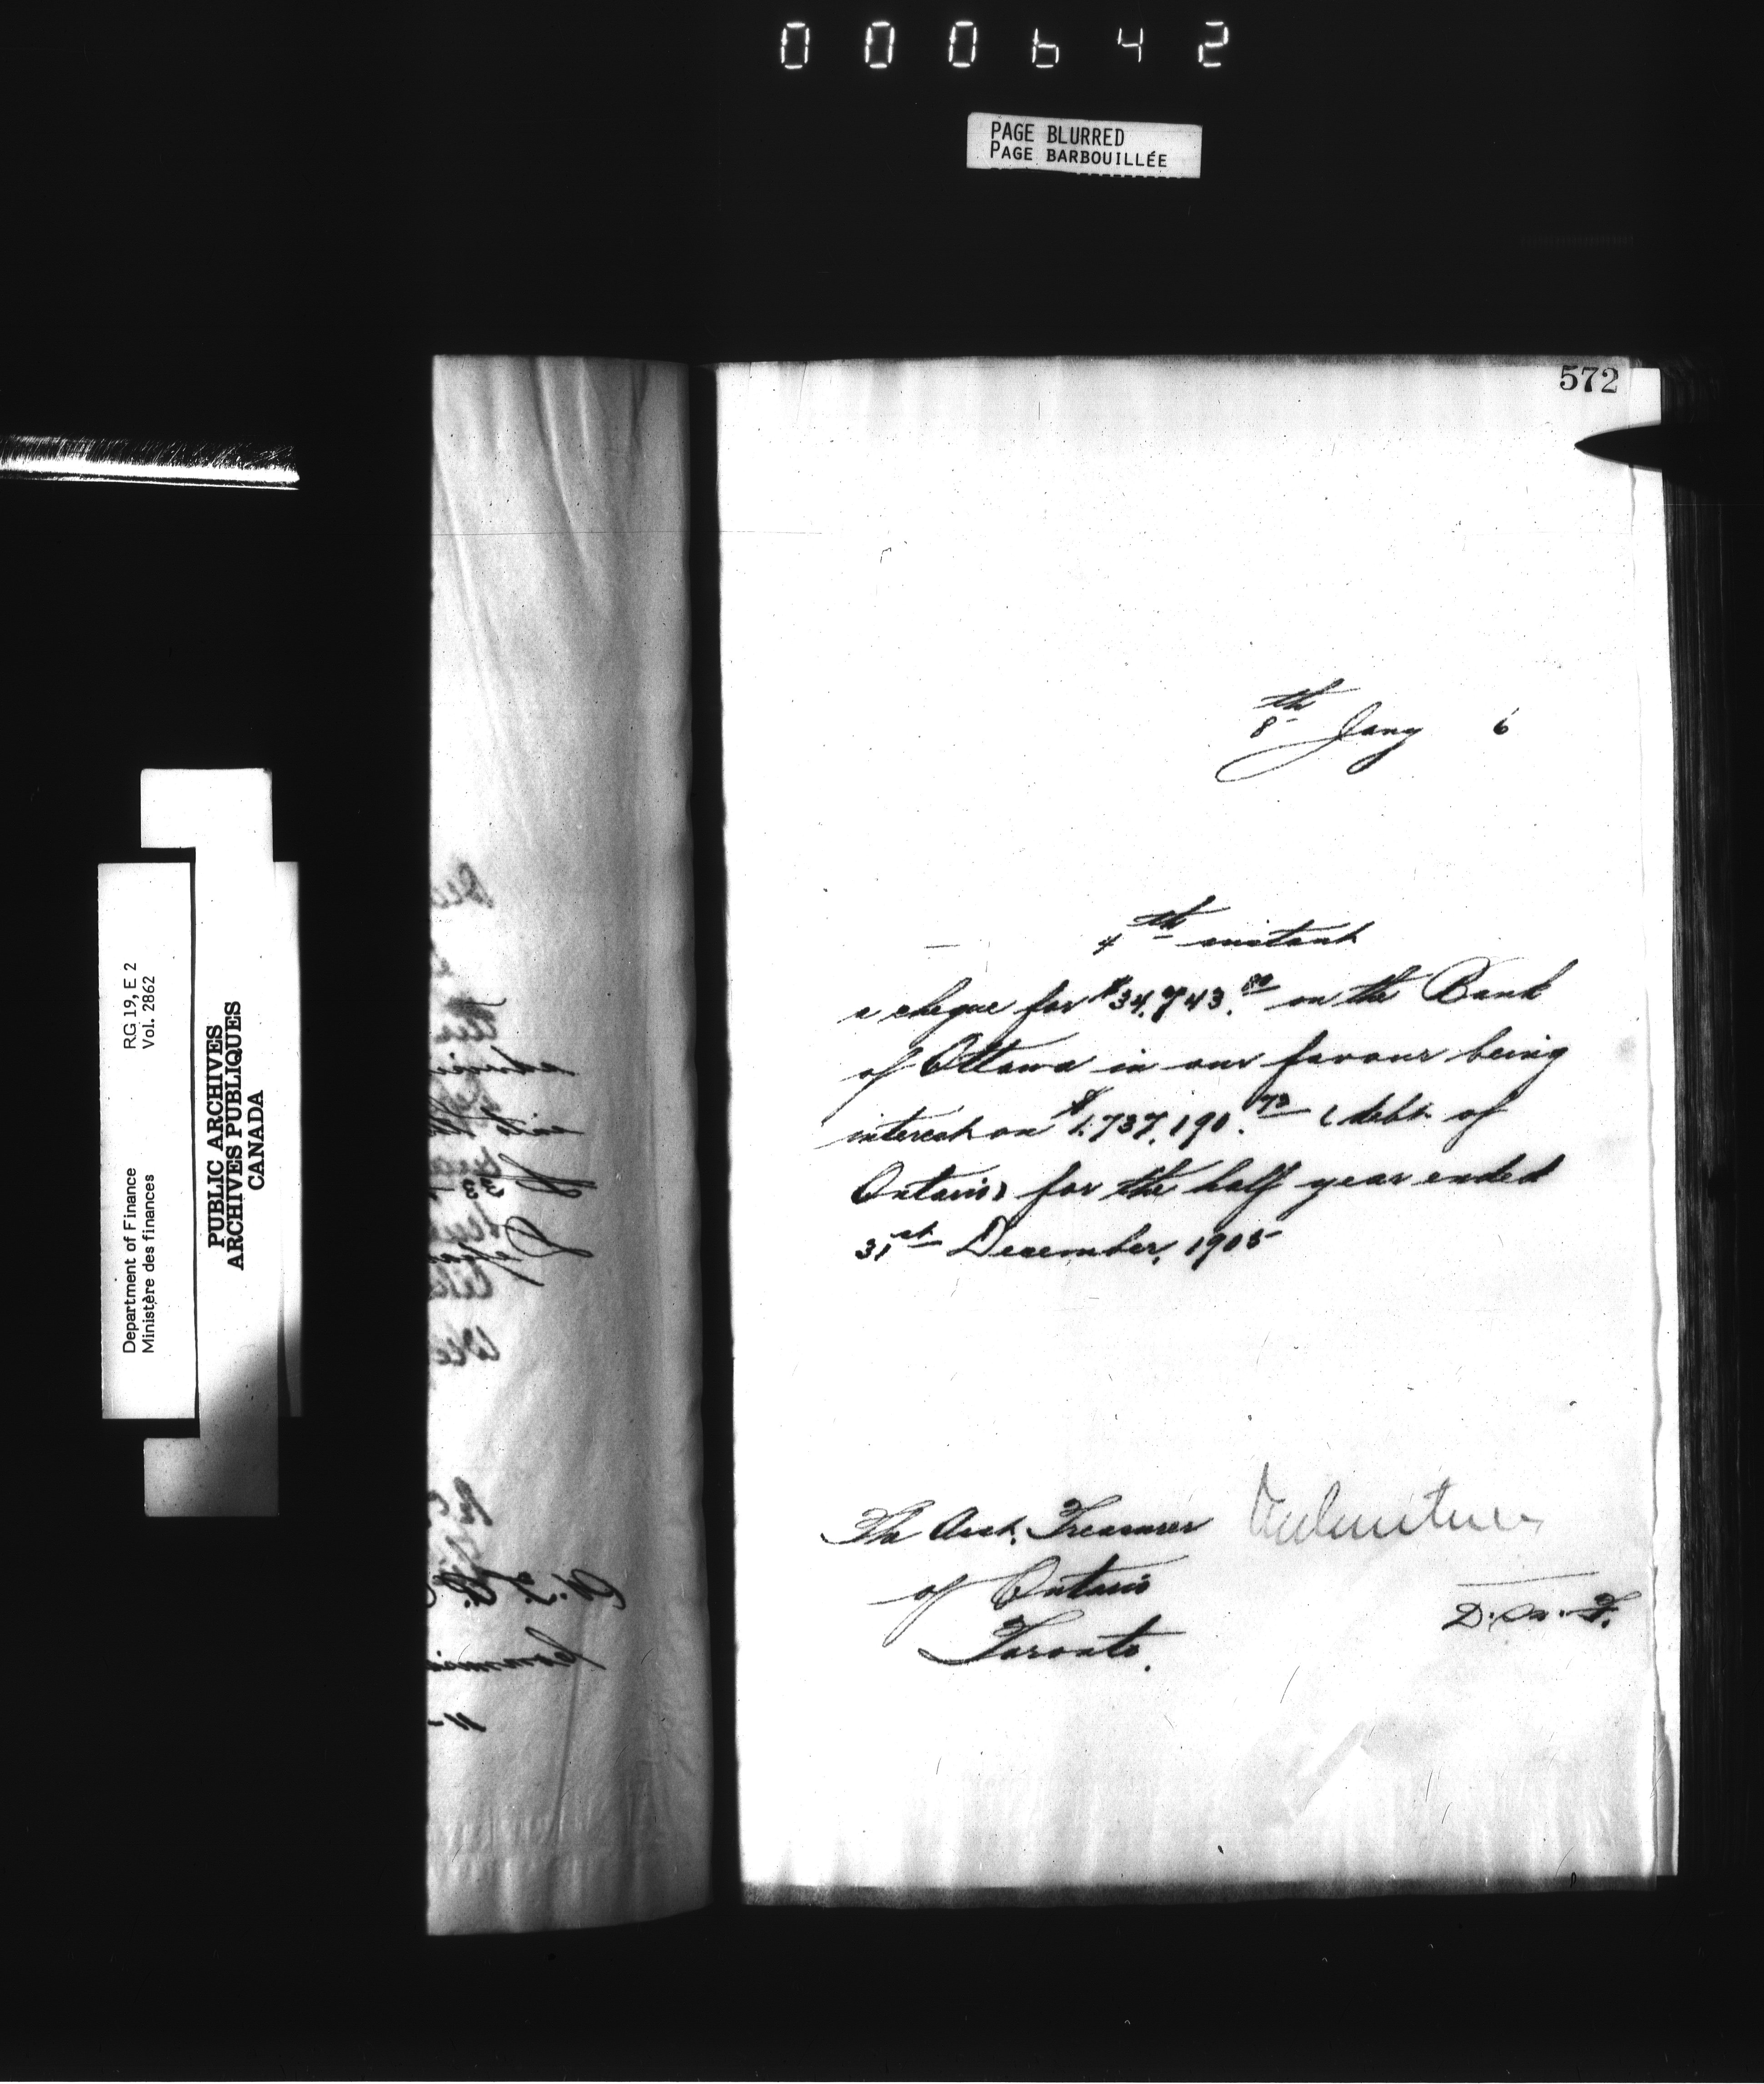 000642
PAGE BLURRED
PAGE BARBOUILLÉE
572
RG 19, E 2
Vol. 2862
Department of Finance
Ministère des finances
PUBLIC ARCHIVES
ARCHIVES PUBLIQUES
CANADA
8th Jany 6
4th instant
a cheque for $34,743.80 on the Bank
of Ottawa in our favour being
interest on $1,737,190.73 (debt of
Ontario) for the half year ended
31st December, 1905
The Asst. Treasurer
of Ontario
Toronto.